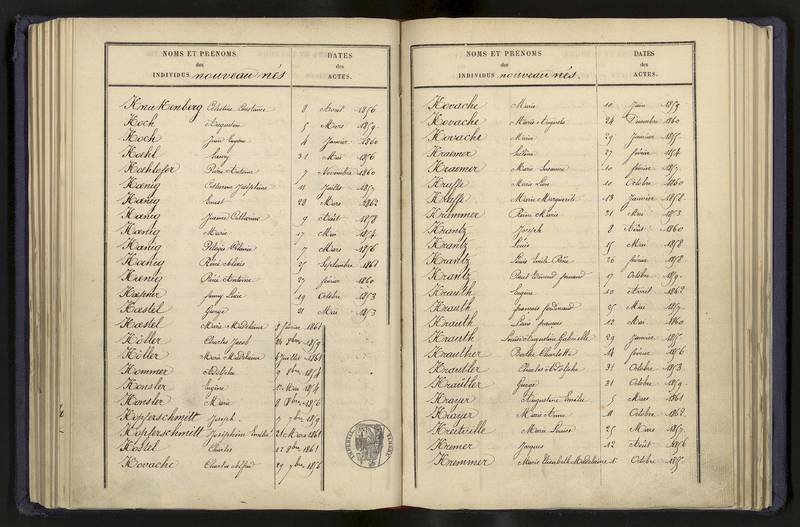 NOMS ET PRÉNOMS
des
INDIVIDUS nouveau nés
DATES
des
ACTES.
Knukenberg Célestine Constance 8 Août 1856
Koch Augustine 5 Mars 1859
Koch Jean Eugène 4 Janvier 1860
Koehl 31 Mai 1856
Koehlofer Pierre Antoine 7 Novembre 1860
Kœnig Catherine Joséphine 11 Juillet 1857
Kœnig Ernest 28 Mars 1862
Kœnig Jeanne Catherine 9 Août 1858
Kœnig Marie 17 Mai 1854
Kœnig Pélagie 7 Mars 1856
Kœnig René Alexis 25 Septembre 1861
Kœnig René Antoine 23 février 1860
Kœpner Fanny Marie 19 Octobre 1853
Kœstel George 21 Mai 1853
Kœstel Marie Madeleine 2 février 1861
Köller Charles Jacob 26 8bre 1859
Köller Marie Madeleine 4 Juillet 1861
Kommer Adolphe 9 8bre 1854
Konsler Eugène Mai 1854
Konsler Marie 8 8bre 1856
Kopferschmitt Joseph 7bre 1859
Kopferschmitt Joséphine Emélie 21 Mars 1861
Kostel Charles 12 8bre 1861
Kovache Charles Alfred 29 7bre 1856
NOMS ET PRÉNOMS
des
INDIVIDUS nouveau nés.
DATES
des
ACTES.
Kovache Marie 10 Juin 1859
Kovache Marie Auguste 24 Décembre 1860
Kovache Marie 29 Janvier 1855
Kraemer hélène 27 février 1854
Kraemer Marie Susanne 10 février 1857
Kraffe 10 Octobre 1860
Kraffe Marie Marguerite 13 Janvier 1858
Krammer Marie 31 Mai 1853
Krantz Joseph 8 Août 1860
Krantz Louis 15 Mai 1858
Krantz Louis Emile 26 février 1858
Krantz Paul Edmond 17 Octobre 1859
Krauth Eugène 10 Avril 1862
Krauth françois ferdinand 25 Mai 1857
Krauth Louis françois 12 Mai 1860
Krauth Louise Augustine Gabrielle 29 Janvier 1855
Krauther Berthe Charlotte 14 février 1856
Krautler Charles Adolphe 31 Octobre 1853
Krautler George 31 Octobre 1859
Krayer Augustine Emélie 5 Mars 1861
Krayer Marie Anne 11 Octobre 1862
Marie Louise 25 Mars 1857
Kremer Jacques 12 Août 1856
Kremmer Marie Elisabeth Madeleine Octobre 1855